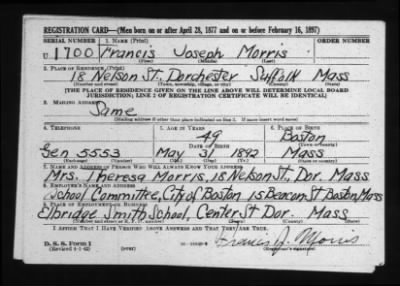 REGISTRATION CARD—(Men born on or after April 28, 1877 and on or before February 16, 1897)
SERIAL NUMBER 1. NAME (Print) ORDER NUMBER
U 1700 Francis Joseph Morris
(First) (Middle) (Last)
2. PLACE OF RESIDENCE (Print)
18 Nelson St. Dorchester Suffolk Mass
(Number and street) (Town, township, village, or city) (County) (State)
[THE PLACE OF RESIDENCE GIVEN ON THE LINE ABOVE WILL DETERMINE LOCAL BOARD
JURISDICTION; LINE 2 OF REGISTRATION CERTIFICATE WILL BE IDENTICAL]
3. MAILING ADDRESS
Same
[Mailing address if other than place indicated on line 2. If same insert word same]
4. TELEPHONE 5. AGE IN YEARS 6. PLACE OF BIRTH
49 Boston
DATE OF BIRTH (Town or county)
Gen 5553 May 31 1892 Mass
(Exchange) (Number) (Mo.) (Day) (Yr.) (State or country)
7. NAME AND ADDRESS OF PERSON WHO WILL ALWAYS KNOW YOUR ADDRESS
Mrs. Theresa Morris, 18 Nelson St. Dor. Mass
8. EMPLOYER'S NAME AND ADDRESS
School Committee, City of Boston 15 Beacon St Boston Mass
9. PLACE OF EMPLOYMENT OR BUSINESS
Elbridge Smith School, Center St Dor. Mass
(Number and street or R. F. D. number) (Town) (County) (State)
I AFFIRM THAT I HAVE VERIFIED ABOVE ANSWERS AND THAT THEY ARE TRUE.
D. S. S. Form 1
(Revised 4-1-42) (over) Francis J. Morris
(Registrant's signature)